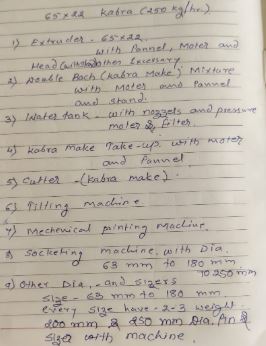 65x22 Kabra (250 kg/hr.)
1) Extruder - 65x22.
with Pannel, Moter and
Head (with other Excersery
2) Double Bach (Kabra Make) Mixture
with Moter and Pannel
and stand.
3) Water tank - with nozzels and pressure
moter & filter.
4) Kabra make Take-up. with moter
and Pannel
5) Cutter - (Kabra make).
6) Tilting machine
7) Mechenical printing machine.
8) Socketing machine. with Dia.
63 mm to 180 mm
to 250 mm
9) Other Dia, - and sizers
size - 63 mm to 180 mm.
every size have - 2-3 weight.
200 mm & 250 mm Dia, Pin &
sizer with machine.